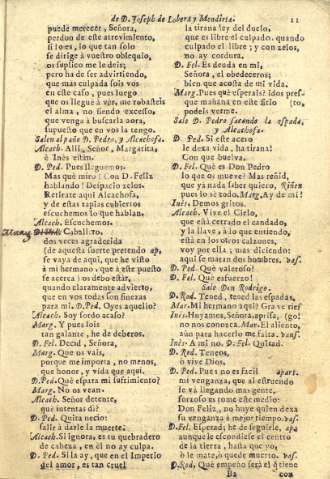 de D. Joseph de Lobera y Mendieta. 11
puede merecer, Señora,
perdon de este atrevimiento,
si lo es, lo que tan solo
se dirige à vuestro obsequio,
os suplico me le deis;
pero ha de ser advirtiendo,
que mas culpada sois vos
en este caso, pues luego
que os lleguè à vèr, me robasteis
el alma, no siendo excesso,
que venga à buscarla aora,
supuesto que en vos la tengo.
Salen al paño D. Pedro, y Alcachofa.
Alcach. Alli, Señor, Margarita,
è Inès estàn.
D. Ped. Pues lleguemos:
Mas què miro! Con D. Felix
hablando! Despacio zelos.
Retirate aqui Alcachofa,
y de estas tapias cubiertos
escuchemos lo que hablan.
Alcach. Escuchemos.
Marg. Cavallero,
dos veces agradecida
(de aquella suerte pretendo ap.
se vaya de aqui, que he visto
à mi hermano) que à este puesto
se acerca) os debo estàr,
quando claramente advierto,
que en vos todas son finezas
para mi. D. Ped. Oyes aquello?
Alcach. Soy sordo acaso?
Marg. Y pues sois
tan galante, he de deberos.
D. Fel. Decid, Señora,
Marg. Que os vais,
porque me importa, no menos,
que honor, y vida que aqui.
D. Ped. Què espera mi sufrimiento?
Marg. No os vean.
Alcach. Señor detente,
què intentas di?
D. Ped. Quita necio:
salir à darle la muerte.
Alcach. Si ignora, es tu quebradero
de cabeza, en èl no ay culpa.
D. Ped. Si la ay, que en el Imperio
del amor, es tan cruel
la tirana ley del duelo,
que es libre el culpado, quando
culpado el libre; y con zelos,
no ay cordura.
D. Fel. Es deuda en mi,
Señora, el obedeceros;
bien que acosta de mi vida.
Marg. Pues què esperais? Idos presto,
que mañana en este sitio
podeis verme.
Sale D. Pedro sacando la espada,
y Alcachofa.
D. Ped. Si este acero
le dexa vida, ha tirana!
Con que vuelva.
D. Fel. Què es Don Pedro
lo que os mueve? Mas reñid,
que ya nada saber quiero, Riñen
pues lo sè todo. Marg. Ay de mi!
Inès. Demos gritos.
Alcach. Vive el Cielo,
que està cerrado el candado,
y la llave, à lo que entiendo,
està en los otros calzones,
voy por ella; mas diciendo:
aqui se matan dos hombres. vas.
D. Ped. Què valeroso!
D. Fel. Què esfuerzo!
Sale Don Rodrigo.
D. Rod. Tened, tened las espadas,
Mar. Mi hermano aqui! Grave riesgo!
Inès. Huyamos, Señora, aprisa,
no nos conozca. Mar. El aliento,
aùn para hacerlo me falta. vans.
Inès. A mi no. D. Fel. Quitad.
D. Rod. Teneos,
ò vive Dios.
D. Ped. Pues no es facil apart.
mi venganza, al que estruendo
se và llegando mas gente,
forzoso es tome este medio:
Don Felix, no huye quien dexa
su venganza à mejor tiempo. vas.
D. Fel. Esperad; he de seguirle, apa.
aunque le escondiesse el centro
de la tierra, hasta que yo,
ò le mate, ò quede muerto. vas.
D. Rod. Què empeño serà el que tiene
B2 con